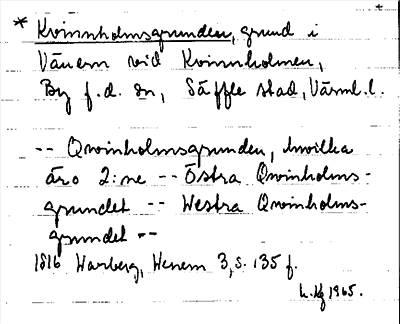 * Kvinnholmsgrunden, grund i
Vänern vid Kvinnholmen,
By f.d. sn, Säffle stad, Värml. l.
-- Qwinholmsgrunden, hwilka
äro 2:ne -- Östra Qwinholms-
grundet -- Westra Qwinholms-
grundet --
1816 Warberg, Wenern 3, s. 135 f.
1965.